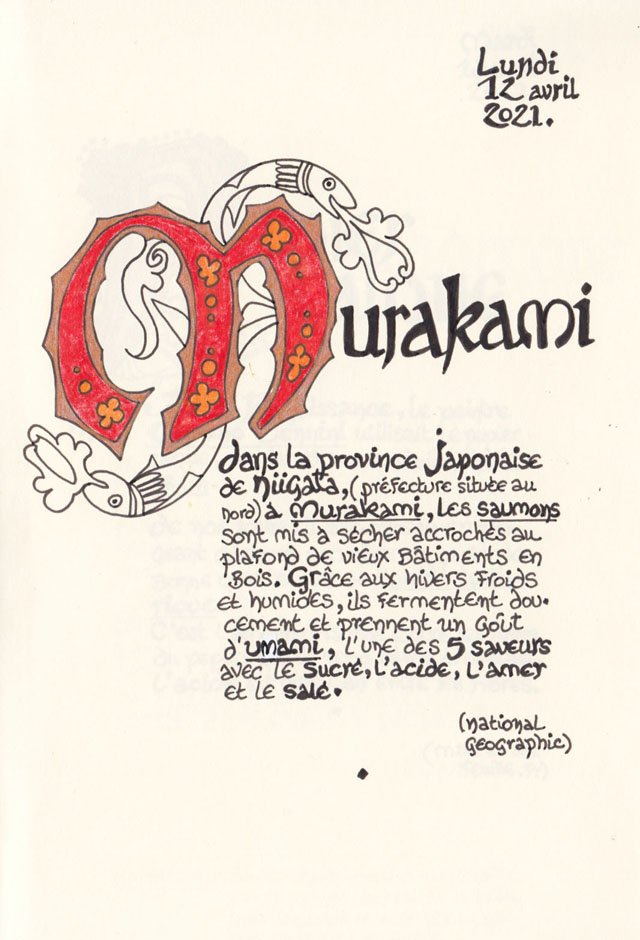 Lundi
12 avril
2021.
Murakami
dans la province japonaise
de Niigata, (préfecture située au
nord) à Murakami, les saumons
sont mis à sécher accrochés au
plafond de vieux Bâtiments en
Bois. Grâce aux hivers froids
et humides, ils fermentent dou-
cement et prennent un goût
d'umami, l'une des 5 saveurs
avec le sucré, l'acide, l'amer
et le salé.
(national
géographic)